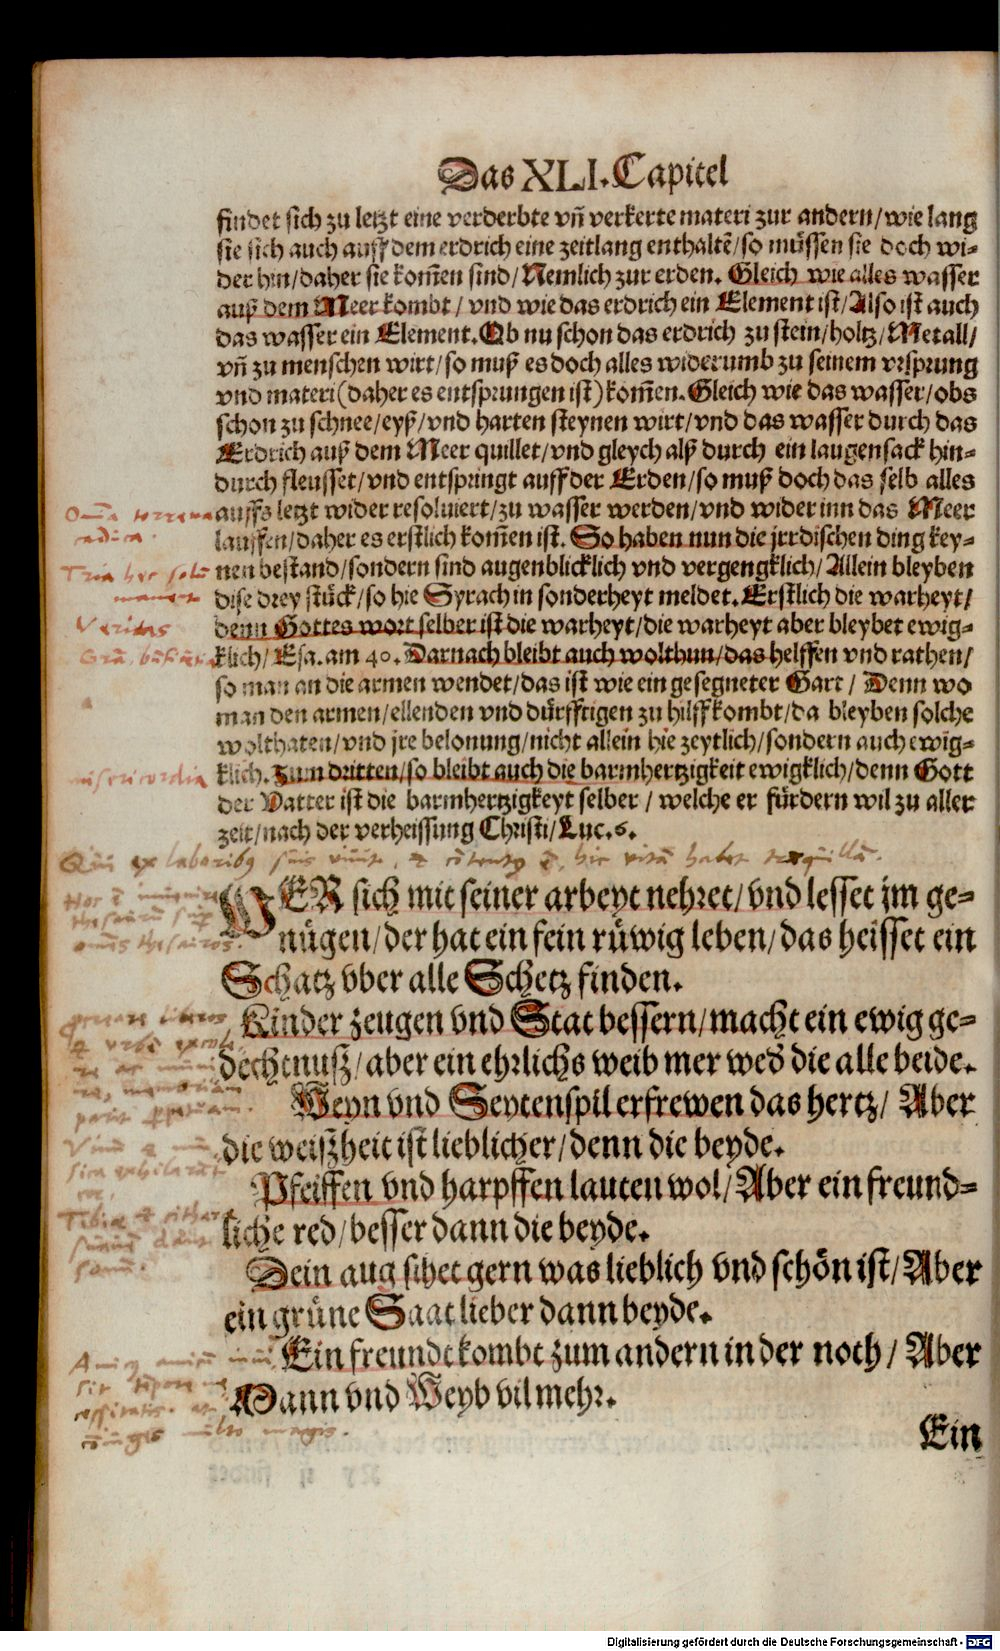 Das XLI. Capitel
findet sich zu letzt eine verderbte vñ verkerte materi zur andern/wie lang
sie sich auch auff dem erdrich eine zeitlang enthaltẽ/so müssen sie doch wi-
der hin/daher sie kom̃en sind/Nemlich zur erden. Gleich wie alles wasser
auß dem Meer kombt/vnd wie das erdrich ein Element ist/Also ist auch
das wasser ein Element. Ob nu schon das erdrich zu stein/holtz/Metall/
vñ zu menschen wirt/so muß es doch alles widerumb zu seinem vrsprung
vnd materi (daher es entsprungen ist) kom̃en. Gleich wie das wasser/obs
schon zu schnee/eyß/vnd harten steynen wirt/vnd das wasser durch das
Erdrich auß dem Meer quillet/vnd gleych alß durch ein laugensack hin-
durch fleusset/vnd entspringt auff der Erden/so muß doch das selb alles
auffs letzt wider resoluiert/zu wasser werden/vnd wider inn das Meer
lauffen/daher es erstlich kom̃en ist. So haben nun die jrrdischen ding key-
nen bestand/sondern sind augenblicklich vnd vergengklich/Allein bleyben
dise drey stück/so hie Syrach in sonderheyt meldet. Erstlich die warheyt/
denn Gottes wort selber ist die warheyt/die warheyt aber bleybet ewig-
klich/Esa. am 40. Darnach bleibt auch wolthun/das helffen vnd rathen/
so man an die armen wendet/das ist wie ein gesegneter Gart/ Denn wo
man den armen/ellenden vnd dürfftigen zu hilff kombt/da bleyben solche
wolthaten/vnd jre belonung/nicht allein hie zeytlich/sondern auch ewig-
klich. Zum dritten/so bleibt auch die barmhertzigkeit ewigklich/denn Gott
der Vatter ist die barmhertzigkeyt selber/ welche er fürdern wil zu aller
zeit/nach der verheissung Christi/Luc. 6.
Qui ex laboribꝰ suis viuit, et cõtentꝰ ẽ, hic vitã habet trãquillã.
WER sich mit seiner arbeyt nehret/vnd lesset jm ge-
nügen/der hat ein fein rüwig leben/das heisset ein
Schatz vber alle Schetz finden.
Kinder zeugen vnd Stat bessern/macht ein ewig ge-
dechtnusz/aber ein ehrlichs weib mer wed̃ die alle beide.
Weyn vnd Seytenspil erfrewen das hertz/ Aber
die weiszheit ist lieblicher/denn die beyde.
Pfeiffen vnd harpffen lauten wol/Aber ein freund-
liche red/besser dann die beyde.
Dein aug sihet gern was lieblich vnd schön ist/Aber
ein grüne Saat lieber dann beyde.
Ein freundt kombt zum andern in der noth/ Aber
Mann vnd Weyb vil mehr.
Ein
Om̃ia terrena
caduca.
Tria hec solũ
manent
Veritas
misericordia
Hoc ẽ inuenire
thesaurũ sup
omnes thesauros.
generare liberos
Vinũ et mu
sica exhilarãt
cor,
Tibiæ et cithara
suauẽ dant
sonũ.
multo magis.
Digitalisierung gefördert durch die Deutsche Forschungsgemeinschaft - DFG